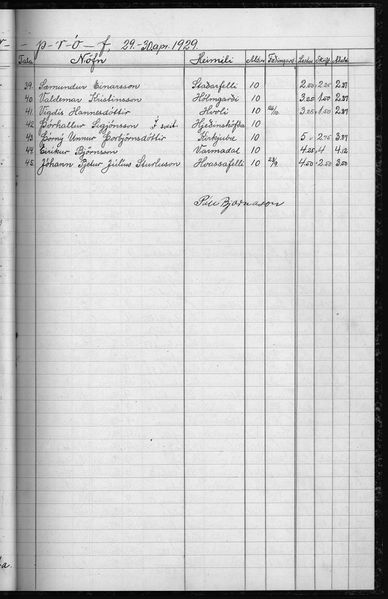 p-r-ó-f, 29.-30 apr. 1929
Tala Nöfn Heimili Aldur Fæðingard. Lestur Skrift
39. Sæmundur Einarsson Staðarfelli 10 2.50 2.25 2.37
40. Valdemar Kristinsson Hólmgarði 10 3.25 1.50 2.37
41. Vigdís Hannesdóttir Hvoli 10 3.25 1.50 2.37
42. Þórhallur Sigjónsson Í sveit Héðinshöfða 10
43. Þórný Unnur Þorbjörnsdóttir Kirkjubæ 10 5.- 2.75 3.87
44. Eiríkur Björnsson Varmadal 10 4.25 4 4.12
45. Jóhann Pjetur Júlíus Sturluson Hvassafelli 10 23/9 4.50 2.50 3.50
Páll Bjarnason